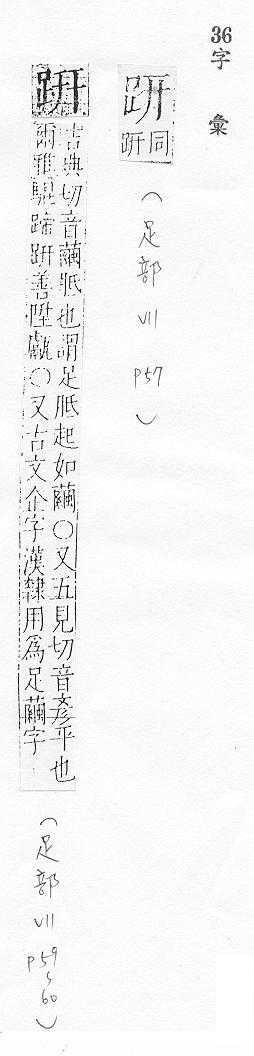 36字彙
趼
同
趼
(足部 VII P57)
趼
古典切音繭胝也謂足胝起如繭○又五見切音彥平也
爾雅騉蹄趼善陞甗○又古文企字漢隸用爲足繭字
(足部 VII P59~60)